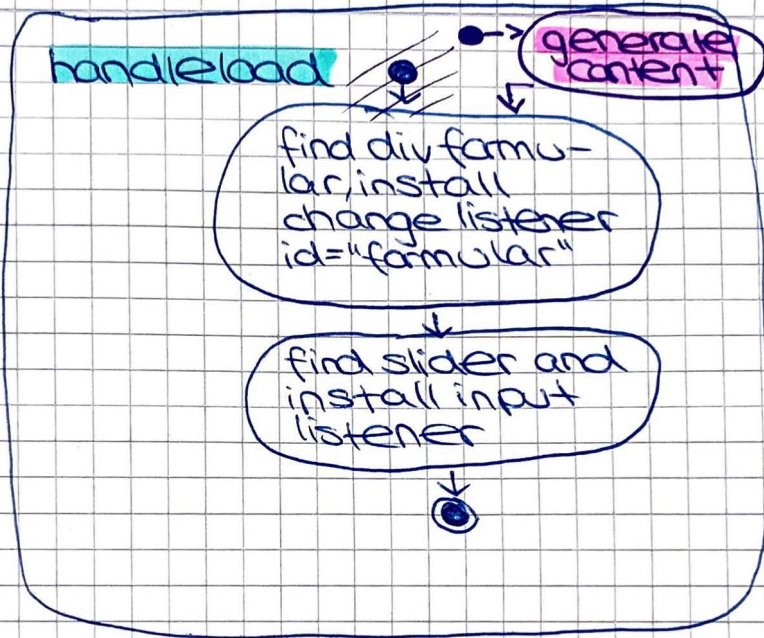 handleload
generate
content
find div formu-
lar, install
change listener
id="formular"
find slider and
install input
listener